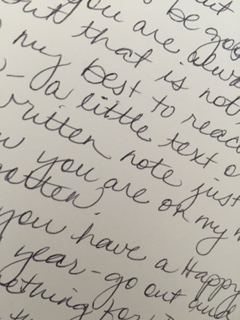 be go
you are alwa
but that is not
my best to reac
a little text o
ritten note just
you are on my m
gotten
you have a Happy
year - go out and
ething for